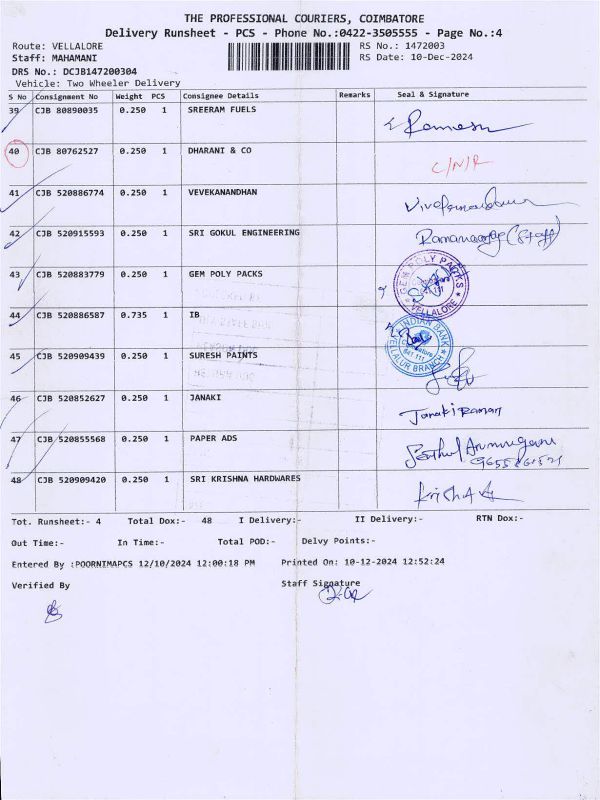 THE PROFESSIONAL COURIERS, COIMBATORE
Delivery Runsheet - PCS - Phone No.:0422-3505555 - Page No.:4
Route: VELLALORE RS No.: 1472003
Staff: MAHAMANI RS Date: 10-Dec-2024
DRS No.: DCJB147200304
Vehicle: Two Wheeler Delivery
S No Consignment No Weight PCS Consignee Details Remarks Seal & Signature
39 CJB 80890035 0.250 1 SREERAM FUELS Ramesh
40 CJB 80762527 0.250 1 DHARANI & CO C/N/R
41 CJB 520886774 0.250 1 VEVEKANANDHAN
42 CJB 520915593 0.250 1 SRI GOKUL ENGINEERING (Staff)
43 CJB 520883779 0.250 1 GEM POLY PACKS GEM POLY PACKS VELLALORE
44 CJB 520886587 0.735 1 IB INDIAN BANK Coimbatore 641 111 VELALUR BRANCH
45 CJB 520909439 0.250 1 SURESH PAINTS
46 CJB 520852627 0.250 1 JANAKI Janakiraman
47 CJB 520855568 0.250 1 PAPER ADS
48 CJB 520909420 0.250 1 SRI KRISHNA HARDWARES
Tot. Runsheet:- 4 Total Dox:- 48 I Delivery:- II Delivery:- RTN Dox:-
Out Time:- In Time:- Total POD:- Delvy Points:-
Entered By :POORNIMAPCS 12/10/2024 12:00:18 PM Printed On: 10-12-2024 12:52:24
Verified By Staff Signature